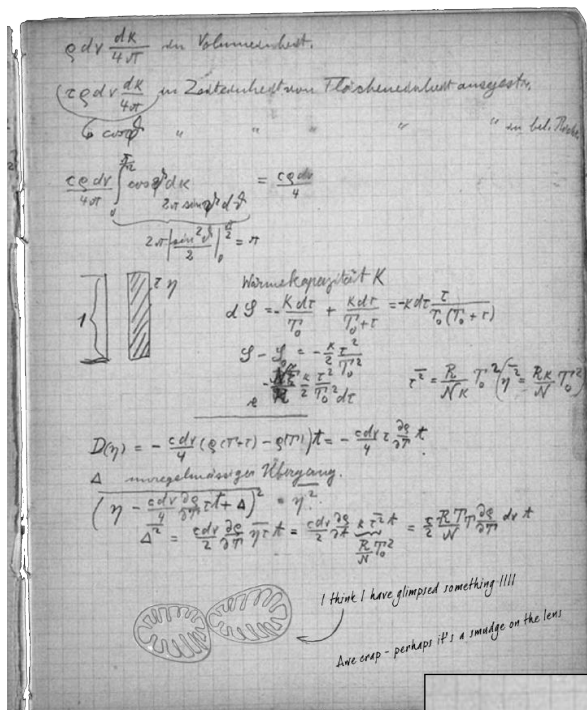 ρ dν dκ/4π in Volumeinheit.
cρ dν dκ/4π in Zeiteinheit von Flächeneinheit ausgestr.
cos ϑ " " " " in bel. Richt.
cρ dν/4π ∫₀^{π/2} cos ϑ dκ = cρ dν/4
2π sin ϑ dϑ
2π |sin²ϑ/2|₀^{π/2} = π
1 τ η
Wärmekapazität K
dS = -κdτ/T₀ + κdτ/(T₀+τ) = -κdτ τ/(T₀(T₀+τ))
S - S₀ = -κ/2 τ²/T₀²
e^{-N/R κ/2 τ²/T₀²} dτ
τ̄² = R/(Nκ) T₀² (η̄² = Rκ/N T₀²)
D(η) = - cdν/4 (ρ(T+τ) - ρ(T))t = - cdν/4 τ ∂ρ/∂T t
Δ unregelmässiger Übergang.
(η - cdν/4 ∂ρ/∂T τt + Δ)² = η̄².
Δ̄² = cdν/2 ∂ρ/∂T η̄τ̄ t = cdν/2 ∂ρ/∂t κτ̄² t = c/2 RT/N T ∂ρ/∂T dν t
R/N T₀²
I think I have glimpsed something !!!!
Awe crap - perhaps it's a smudge on the lens